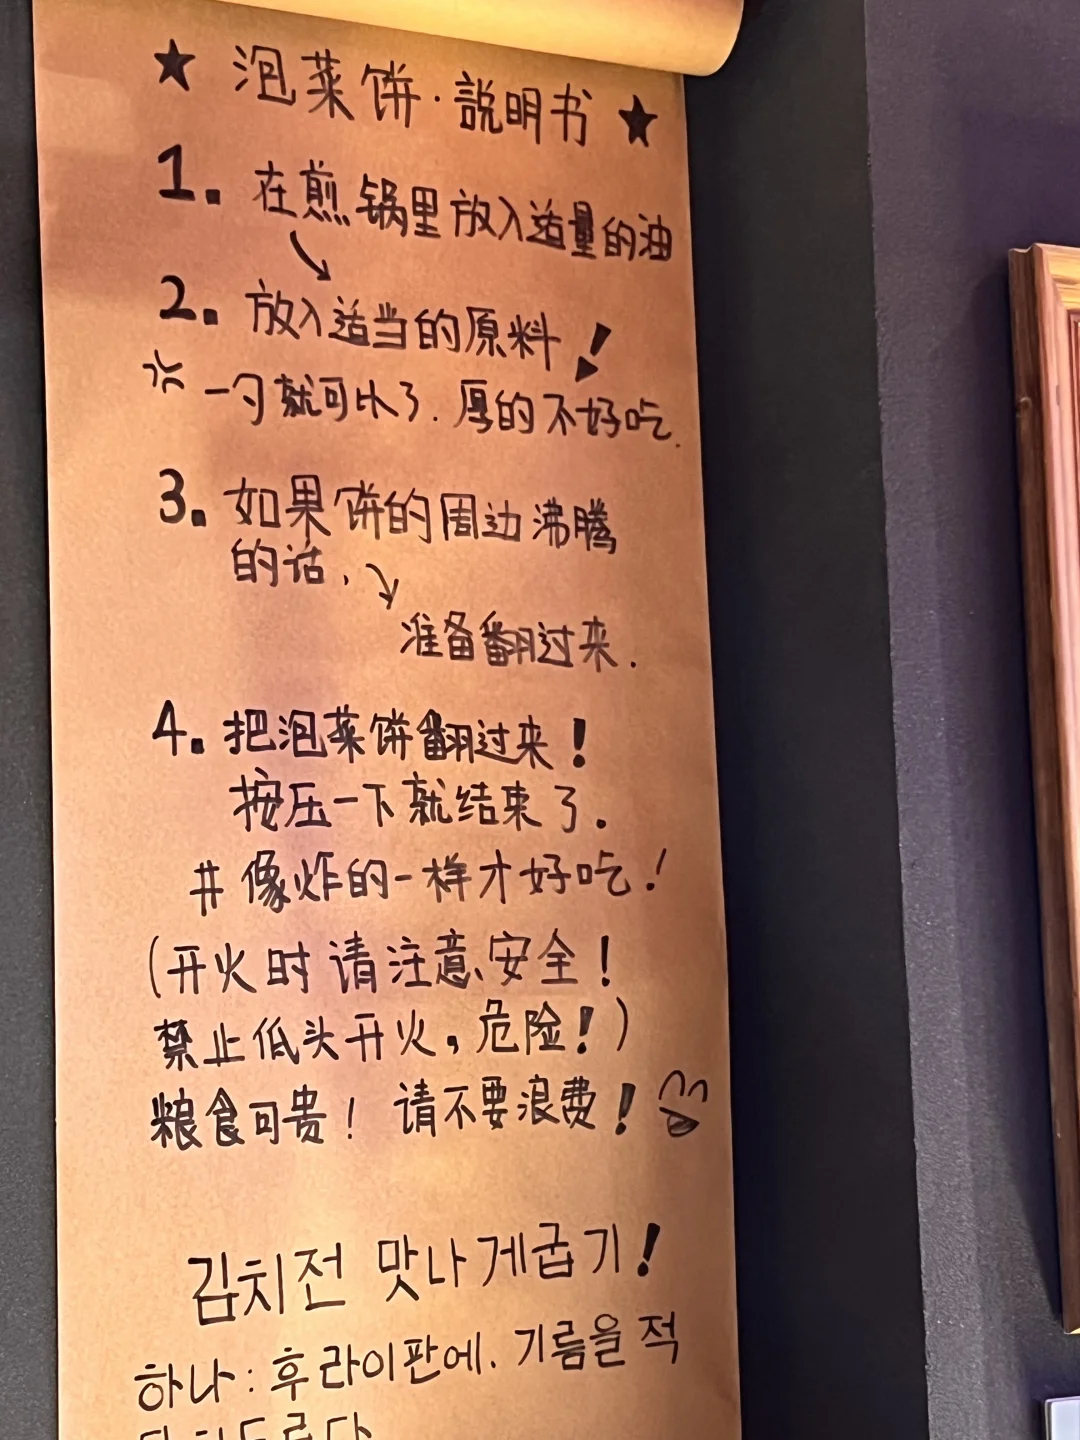 ★ 泡菜饼·説明书 ★
1. 在煎锅里放入适量的油
2. 放入适当的原料!
一勺就可以了. 厚的不好吃.
3. 如果饼的周边沸腾
的话.
准备翻过来.
4. 把泡菜饼翻过来!
按压一下就结束了.
# 像炸的一样才好吃!
(开火时请注意安全!
禁止低头开火,危险!)
粮食可贵! 请不要浪费!
김치전 맛나게굽기!
하나: 후라이판에. 기름을 적